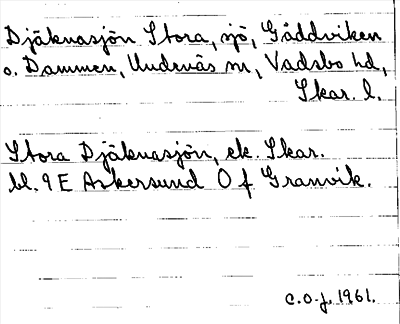 Djäknasjön Stora, sjö, Gäddviken
o. Dammen, Undenäs sn, Vadsbo hd,
Skar. l.
Stora Djäknasjön, ek. Skar.
bl. 9 E Askersund 0 f Granvik.
C.O-j. 1961.